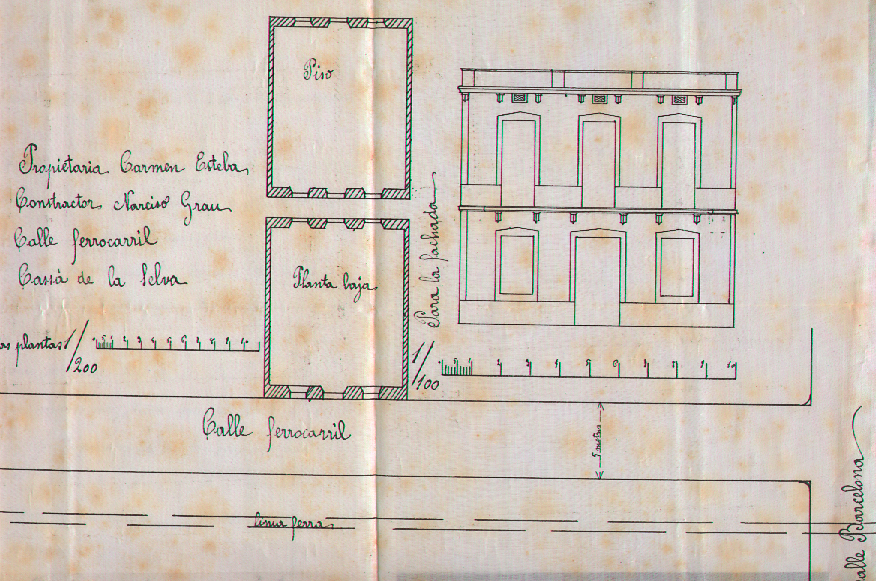 Piso
Propietaria Carmen Esteba
Constractor Narciso Grau
Calle ferrocarril
Cassá de la Selva
Planta baja
Para la fachada
as plantas 1/200
1/100
Calle ferrocarril
linea ferra
alle Barcelona